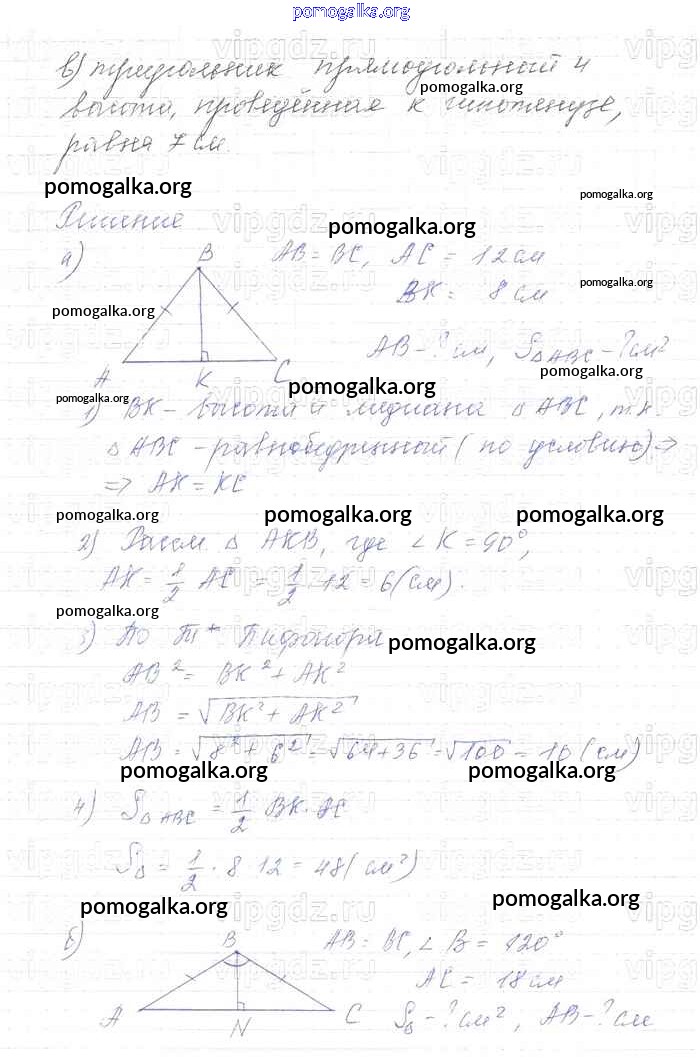 pomogalka.org
в) треугольник прямоугольный и
высота, проведённая к гипотенузе,
равна 7 см.
Решение
а)
B
A K C
AB = BC, AC = 12 см
BK = 8 см
AB - ? см, S△ABC - ? см²
1) BK - высота и медиана △ ABC, т.к
△ ABC - равнобедренный (по условию) ⇒
⇒ AK = KC
2) Рассм. △ AKB, где ∠K = 90°,
AK = 1/2 AC = 1/2 · 12 = 6 (см).
3) По Т. Пифагора
AB² = BK² + AK²
AB = √BK² + AK²
AB = √8² + 6² = √64+36 = √100 = 10 (см)
4) S△ABC = 1/2 BK · AC
S△ = 1/2 · 8 · 12 = 48 (см²)
б)
B
A N C
AB = BC, ∠B = 120°
AC = 18 см
S△ - ? см², AB - ? см
pomogalka.org
vipgdz.ru